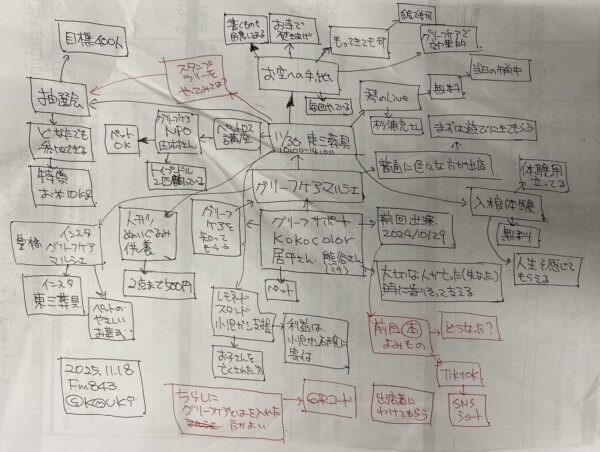 目標400人
書くものも
用意してある
お寺で
焚きあげ
もってきても可
グリーフケアで
効果的
スタンプ
ラリーを
やってみては?
お空への手紙
毎回やっている
琴のLive
無料
当日の午前中
杉浦充さん
抽選会
どなたでも
参加できる
特賞
お米10kg
ペット
OK
グリーフケア
NPO
田村さん
トイプードル
2匹飼っている
ペットロス
講座
11/30 東三葬具
10:00~14:00
まずは遊びに来てもらう
普通に色々な方が出店
体験用
立ってる
入棺体験
無料
人生を感じて
もらえる
グリーフケアマルシェ
グリーフ
ケアを
知って
もらう
グリーフサポート
Kokocolor
居平さん 熊谷さん
ペット
前回出演
2024/10/29
大切な人が亡(失なった)
時に寄りそって支える
豊橋
インスタ
グリーフケア
マルシェ
インスタ
東三葬具
ペットの
やさしい
お葬式
人形
ぬいぐるみ
供養
2点まで500円
レモネード
スタンド
小児がん支援
利益は、
小児がん支援に
寄付
お子さんを
亡くされた方
前回本
よみもの
どうなった?
Tiktok
SNS
ショート
2025.11.18
Fm843
ちらしに
グリーフケアとはを入れた
方がよい
QRコード
出店者に
わけてもらう